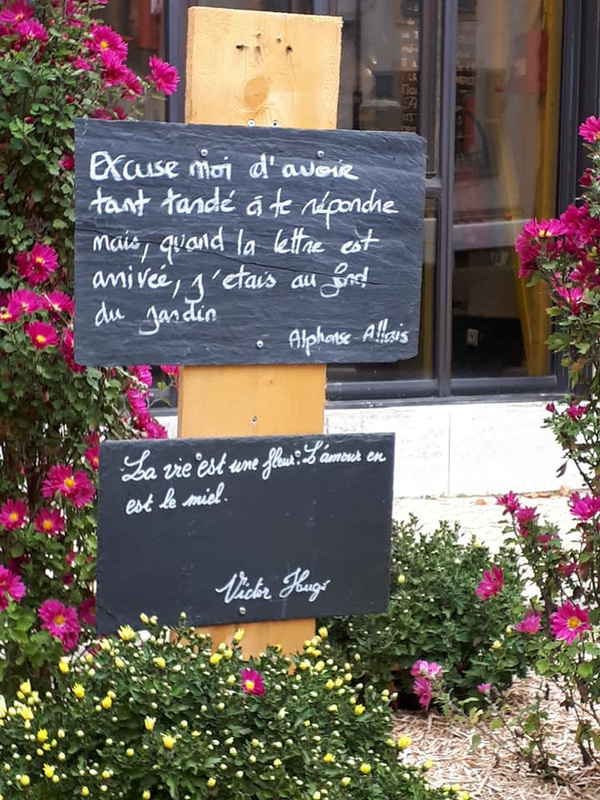 Excuse moi d'avoir
tant tardé à te répondre
mais, quand la lettre est
arrivée, j'etais au fond
du jardin
Alphonse Allais
La vie est une fleur. L'amour en
est le miel.
Victor Hugo